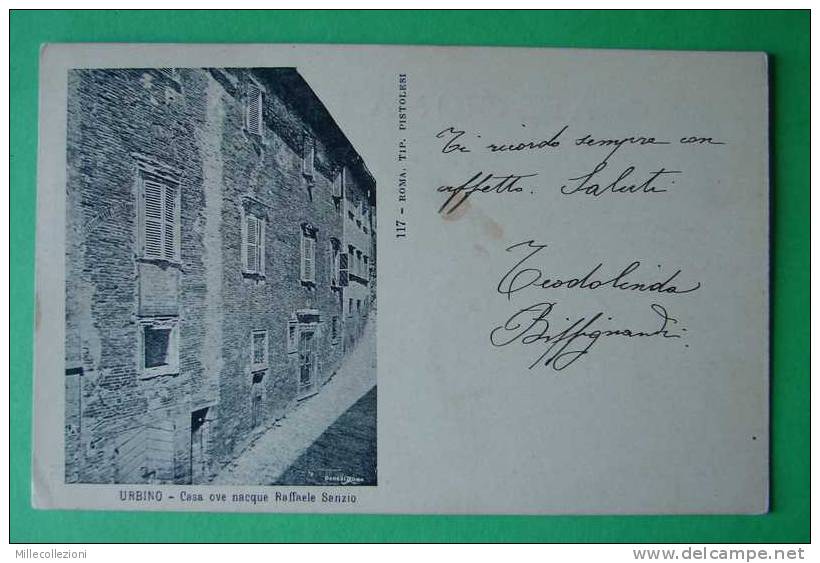 117 - ROMA. TIP. PISTOLESI
Ti ricordo sempre con
affetto. Saluti
Teodolinda
Biffignandi.
URBINO - Casa ove nacque Raffaele Sanzio
Millecollezioni
www.delcampe.net